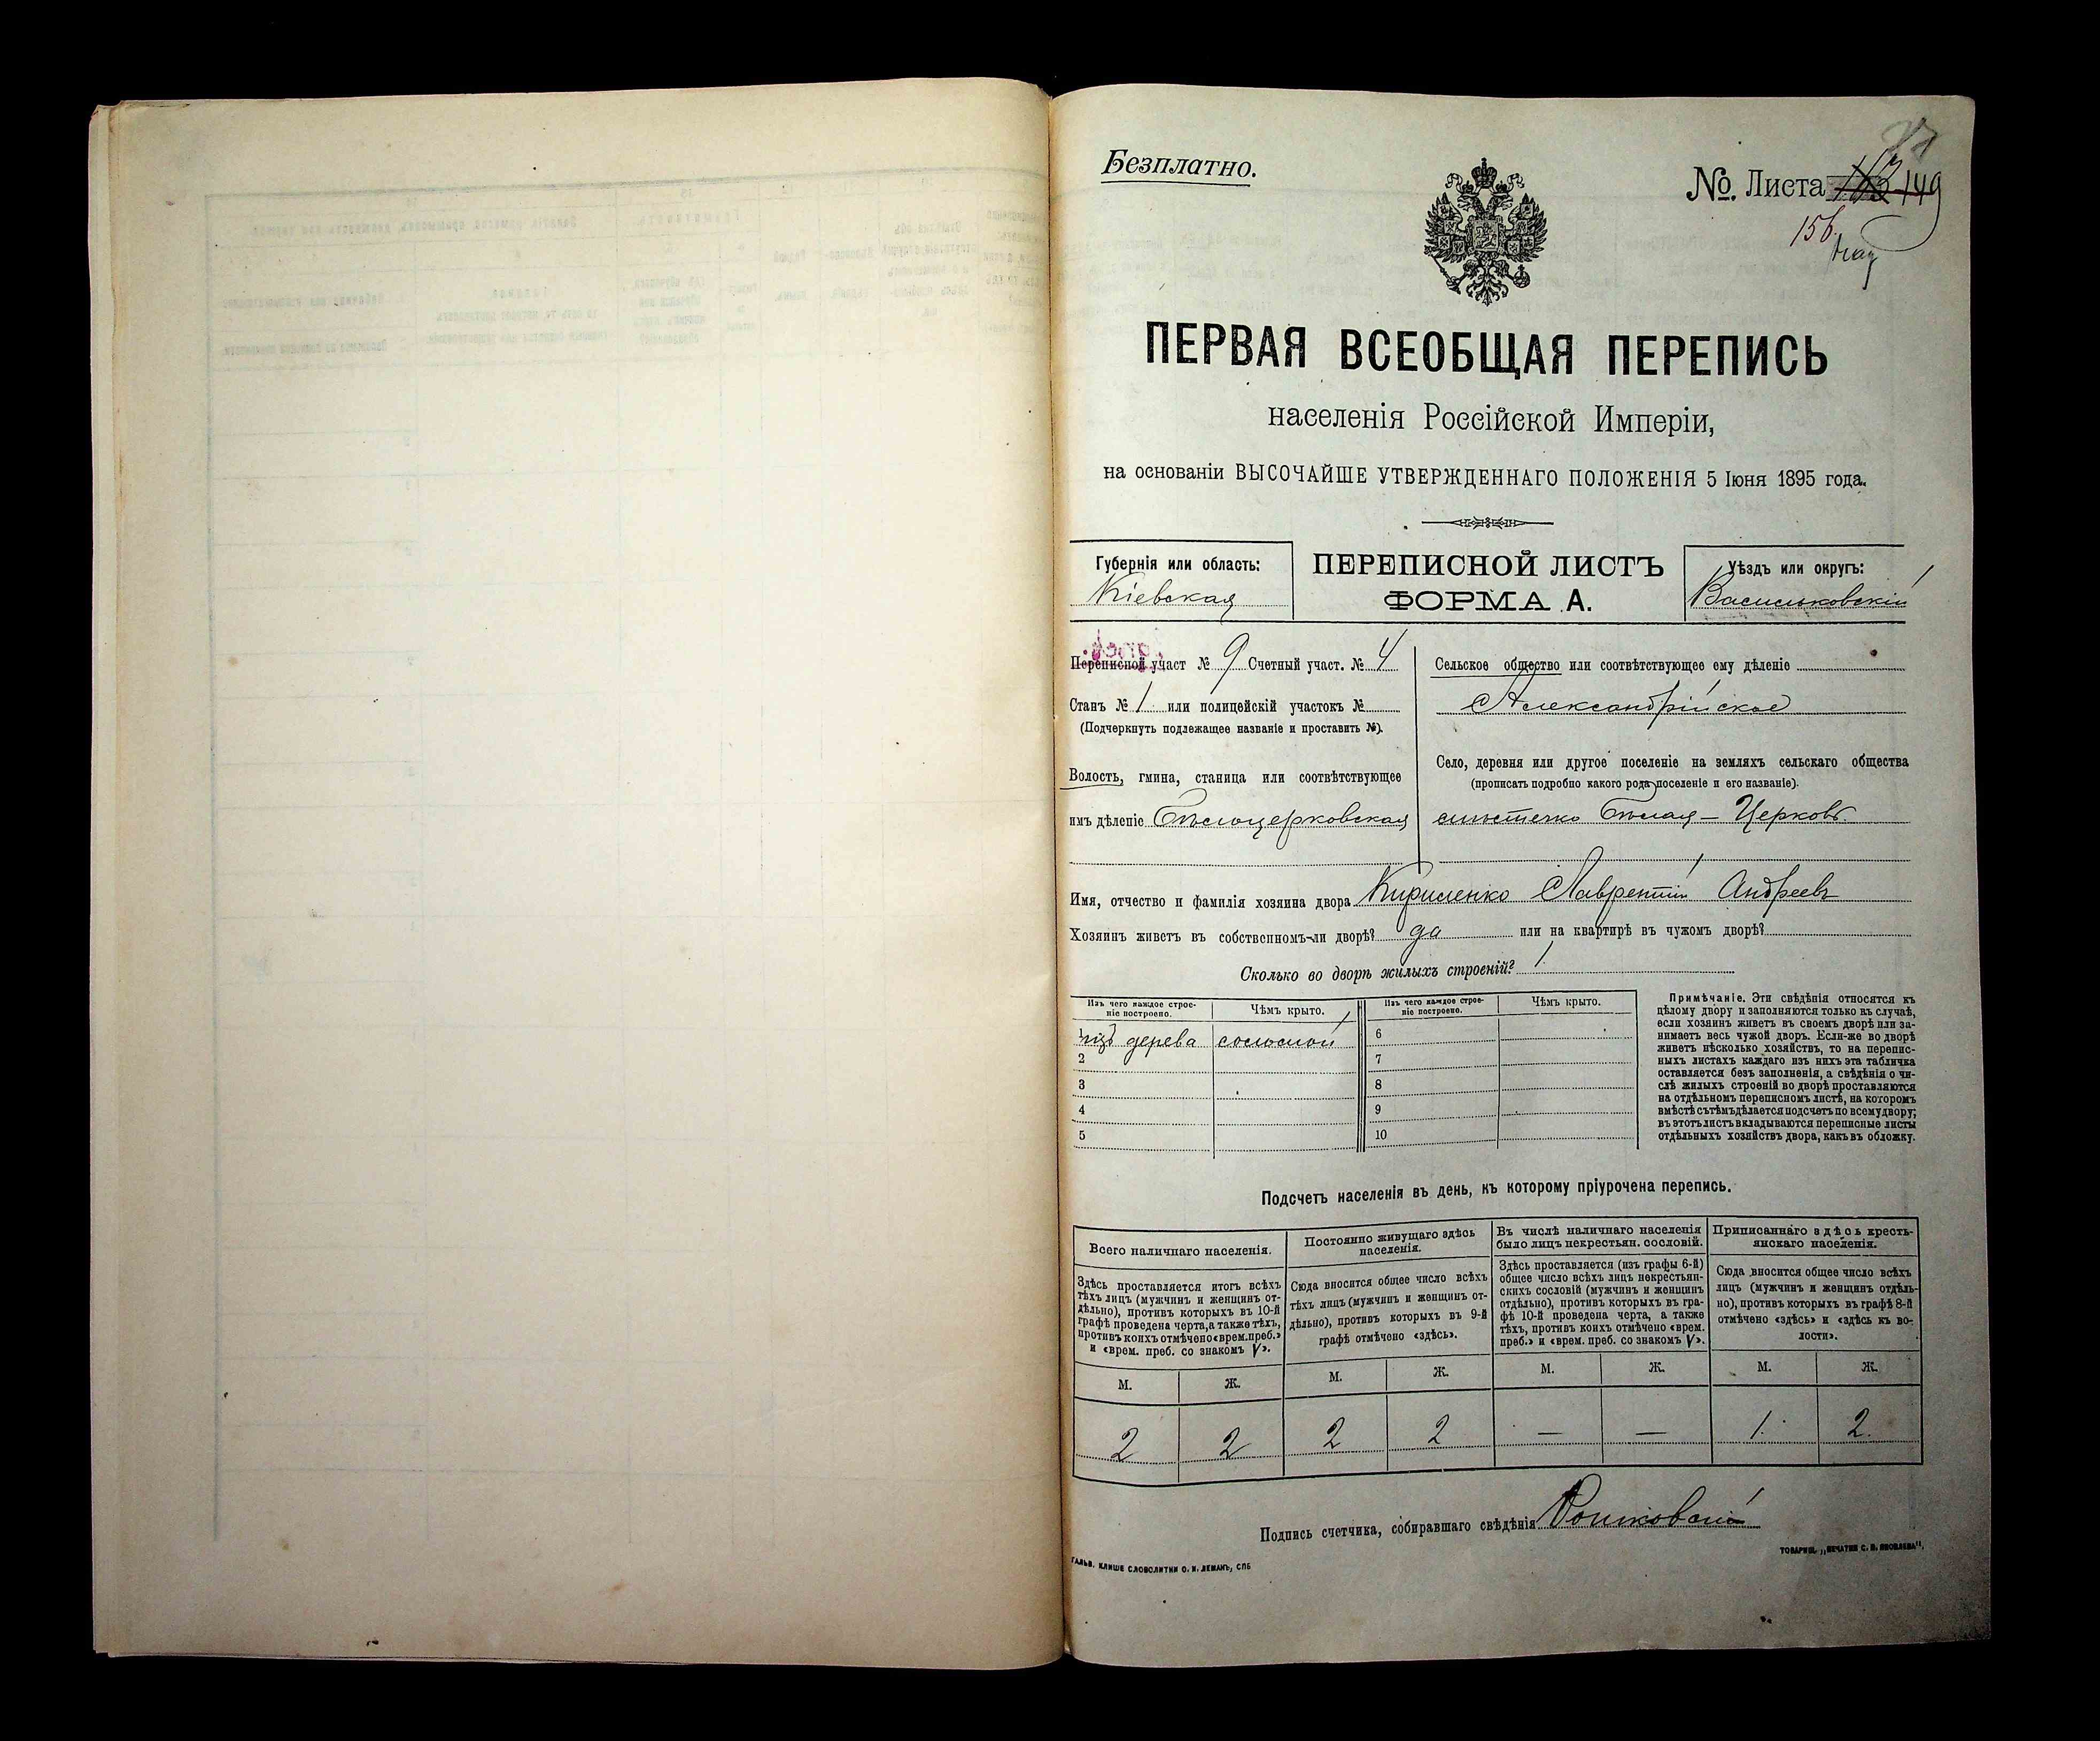 Безплатно.
№. Листа 149
156.
ПЕРВАЯ ВСЕОБЩАЯ ПЕРЕПИСЬ
населенія Россійской Имперіи,
на основаніи ВЫСОЧАЙШЕ УТВЕРЖДЕННАГО ПОЛОЖЕНІЯ 5 Іюня 1895 года.
Губернія или область:
Кіевская
ПЕРЕПИСНОЙ ЛИСТЪ
ФОРМА А.
Уѣздъ или округъ:
Васильковскій
Переписной участ № 9 Счетный участ. № 4
Станъ № 1 или полицейскій участокъ №
(Подчеркнуть подлежащее названіе и проставить №).
Волость, гмина, станица или соотвѣтствующее
имъ дѣленіе Бѣлоцерковская
Сельское общество или соотвѣтствующее ему дѣленіе
Александрійское
Село, деревня или другое поселеніе на земляхъ сельскаго общества
(прописать подробно какого рода поселеніе и его названіе).
мѣстечко Бѣлая-Церковь
Имя, отчество и фамилія хозяина двора Кириленко Лаврентій Андреевъ
Хозяинъ живетъ въ собственномъ-ли дворѣ? да или на квартирѣ въ чужомъ дворѣ?
Сколько во дворѣ жилыхъ строеній? 1
Изъ чего каждое строе-
ніе построено.
Чѣмъ крыто.
1 изъ дерева соломой
2
3
4
5
Изъ чего каждое строе-
ніе построено.
Чѣмъ крыто.
6
7
8
9
10
Примѣчаніе. Эти свѣдѣнія относятся къ
цѣлому двору и заполняются только въ случаѣ,
если хозяинъ живетъ въ своемъ дворѣ или за-
нимаетъ весь чужой дворъ. Если-же во дворѣ
живетъ нѣсколько хозяйствъ, то на перепис-
ныхъ листахъ каждаго изъ нихъ эта табличка
оставляется безъ заполненія, а свѣдѣнія о чи-
слѣ жилыхъ строеній во дворѣ проставляются
на отдѣльномъ переписномъ листѣ, на которомъ
вмѣстѣ съ тѣмъ дѣлается подсчетъ по всему двору;
въ этотъ листъ вкладываются переписные листы
отдѣльныхъ хозяйствъ двора, какъ въ обложку.
Подсчетъ населенія въ день, къ которому пріурочена перепись.
Всего наличнаго населенія.
Здѣсь проставляется итогъ всѣхъ
тѣхъ лицъ (мужчинъ и женщинъ от-
дѣльно), противъ которыхъ въ 10-й
графѣ проведена черта, а также тѣхъ,
противъ коихъ отмѣчено «врем. преб.»
и «врем. преб. со знакомъ V».
Постоянно живущаго здѣсь
населенія.
Сюда вносится общее число всѣхъ
тѣхъ лицъ (мужчинъ и женщинъ от-
дѣльно), противъ которыхъ въ 9-й
графѣ отмѣчено «здѣсь».
Въ числѣ наличнаго населенія
было лицъ некрестьян. сословій.
Здѣсь проставляется (изъ графы 6-й)
общее число всѣхъ лицъ некрестьян-
скихъ сословій (мужчинъ и женщинъ
отдѣльно), противъ которыхъ въ гра-
фѣ 10-й проведена черта, а также
тѣхъ, противъ коихъ отмѣчено «врем.
преб.» и «врем. преб. со знакомъ V».
Приписаннаго здѣсь кресть-
янскаго населенія.
Сюда вносится общее число всѣхъ
лицъ (мужчинъ и женщинъ отдѣль-
но), противъ которыхъ въ графѣ 8-й
отмѣчено «здѣсь» и «здѣсь къ во-
лости».
М. Ж. М. Ж. М. Ж. М. Ж.
2 2 2 2 — — 1 2
Подпись счетчика, собиравшаго свѣдѣнія
ГАЛЬВ. КЛИШЕ СЛОВОЛИТНИ О. И. ЛЕМАНЪ, СПБ
ТОВАРИЩ. „ПЕЧАТНЯ С. П. ЯКОВЛЕВА“,